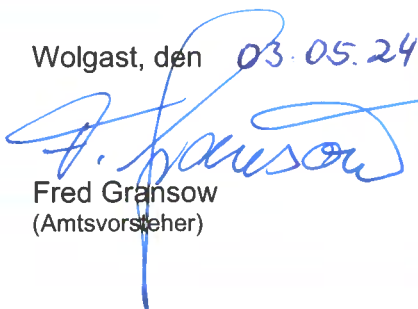 Wolgast, den 03.05.24
F. Gransow
Fred Gransow
(Amtsvorsteher)